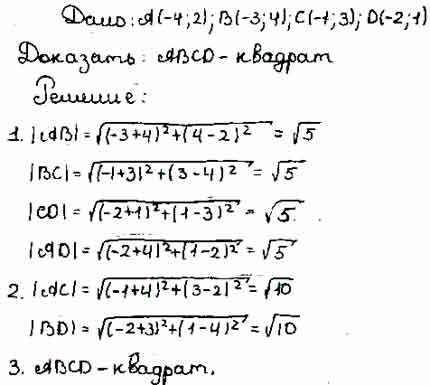 Дано: A(-4;2); B(-3;4); C(-1;3); D(-2;1)
Доказать: ABCD - квадрат
Решение:
1. |AB| = √((-3+4)²+(4-2)²) = √5
|BC| = √((-1+3)²+(3-4)²) = √5
|CD| = √((-2+1)²+(1-3)²) = √5
|AD| = √((-2+4)²+(1-2)²) = √5
2. |AC| = √((-1+4)²+(3-2)²) = √10
|BD| = √((-2+3)²+(1-4)²) = √10
3. ABCD - квадрат.